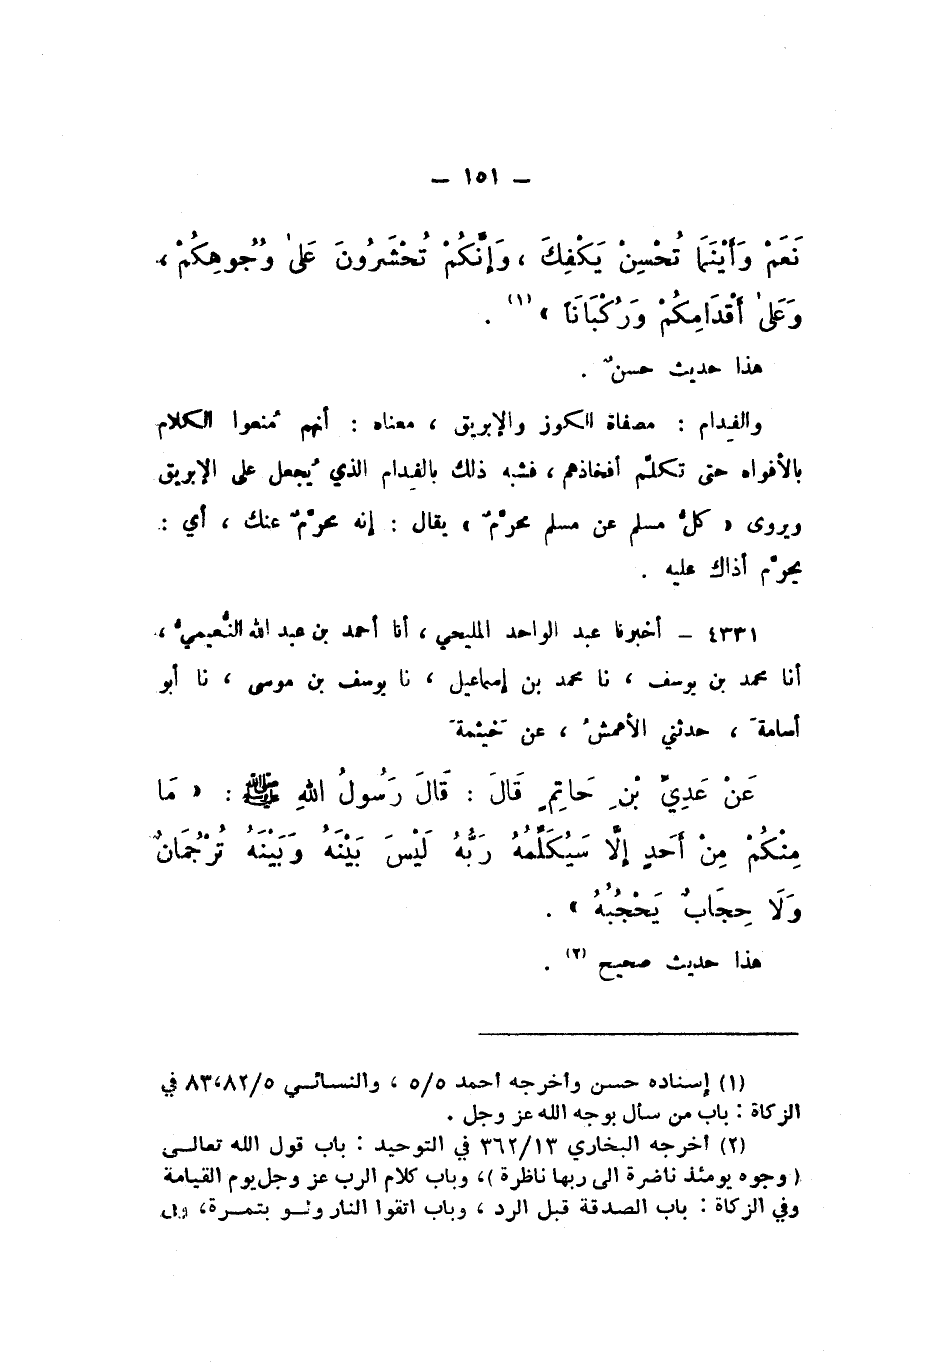 – ١٥١ –
نَعَمْ وَأَيْنَمَا تُحْسِنْ يَكْفِكَ ، وَإِنَّكُمْ تُحْشَرُونَ عَلَىٰ وُجُوهِكُمْ ،
وَعَلَىٰ أَقْدَامِكُمْ وَرُكْبَانَاً » (١) .
هذا حديث حسنٌ .
والفِدام : مصفاة الكوز والإبريق ، معناه : أنهم مُنعوا الكلام
بالأفواه حتى تكلّم أفخاذهم ، فشبه ذلك بالفِدام الذي يُجعل على الإبريق
ويروى « كلُّ مسلم عن مسلم محرَّمٌ » يقال : إنه محرَّمٌ عنك ، أي :
يحرَّم أذاك عليه .
٤٣٣١ – أخبرنا عبد الواحد المليحي ، أنا أحمد بن عبد الله النُّعيميُّ ،
أنا محمد بن يوسف ، نا محمد بن إسماعيل ، نا يوسف بن موسى ، نا أبو
أسامةَ ، حدثني الأعمشُ ، عن خَيثمةَ
عَنْ عَدِيِّ بْنِ حَاتِمٍ قَالَ : قَالَ رَسُولُ اللهِ ﷺ : « مَا
مِنْكُمْ مِنْ أَحَدٍ إِلَّا سَيُكَلِّمُهُ رَبُّهُ لَيْسَ بَيْنَهُ وَبَيْنَهُ تُرْجُمَانٌ
وَلَا حِجَابٌ يَحْجُبُهُ » .
هذا حديث صحيح (٢) .
(١) إسناده حسن وأخرجه أحمد ٥/٥ ، والنسائي ٨٣،٨٢/٥ في
الزكاة : باب من سأل بوجه الله عز وجل .
(٢) أخرجه البخاري ٣٦٢/١٣ في التوحيد : باب قول الله تعالى
( وجوه يومئذ ناضرة الى ربها ناظرة )، وباب كلام الرب عز وجل يوم القيامة
وفي الزكاة : باب الصدقة قبل الرد ، وباب اتقوا النار ولو بتمرة،